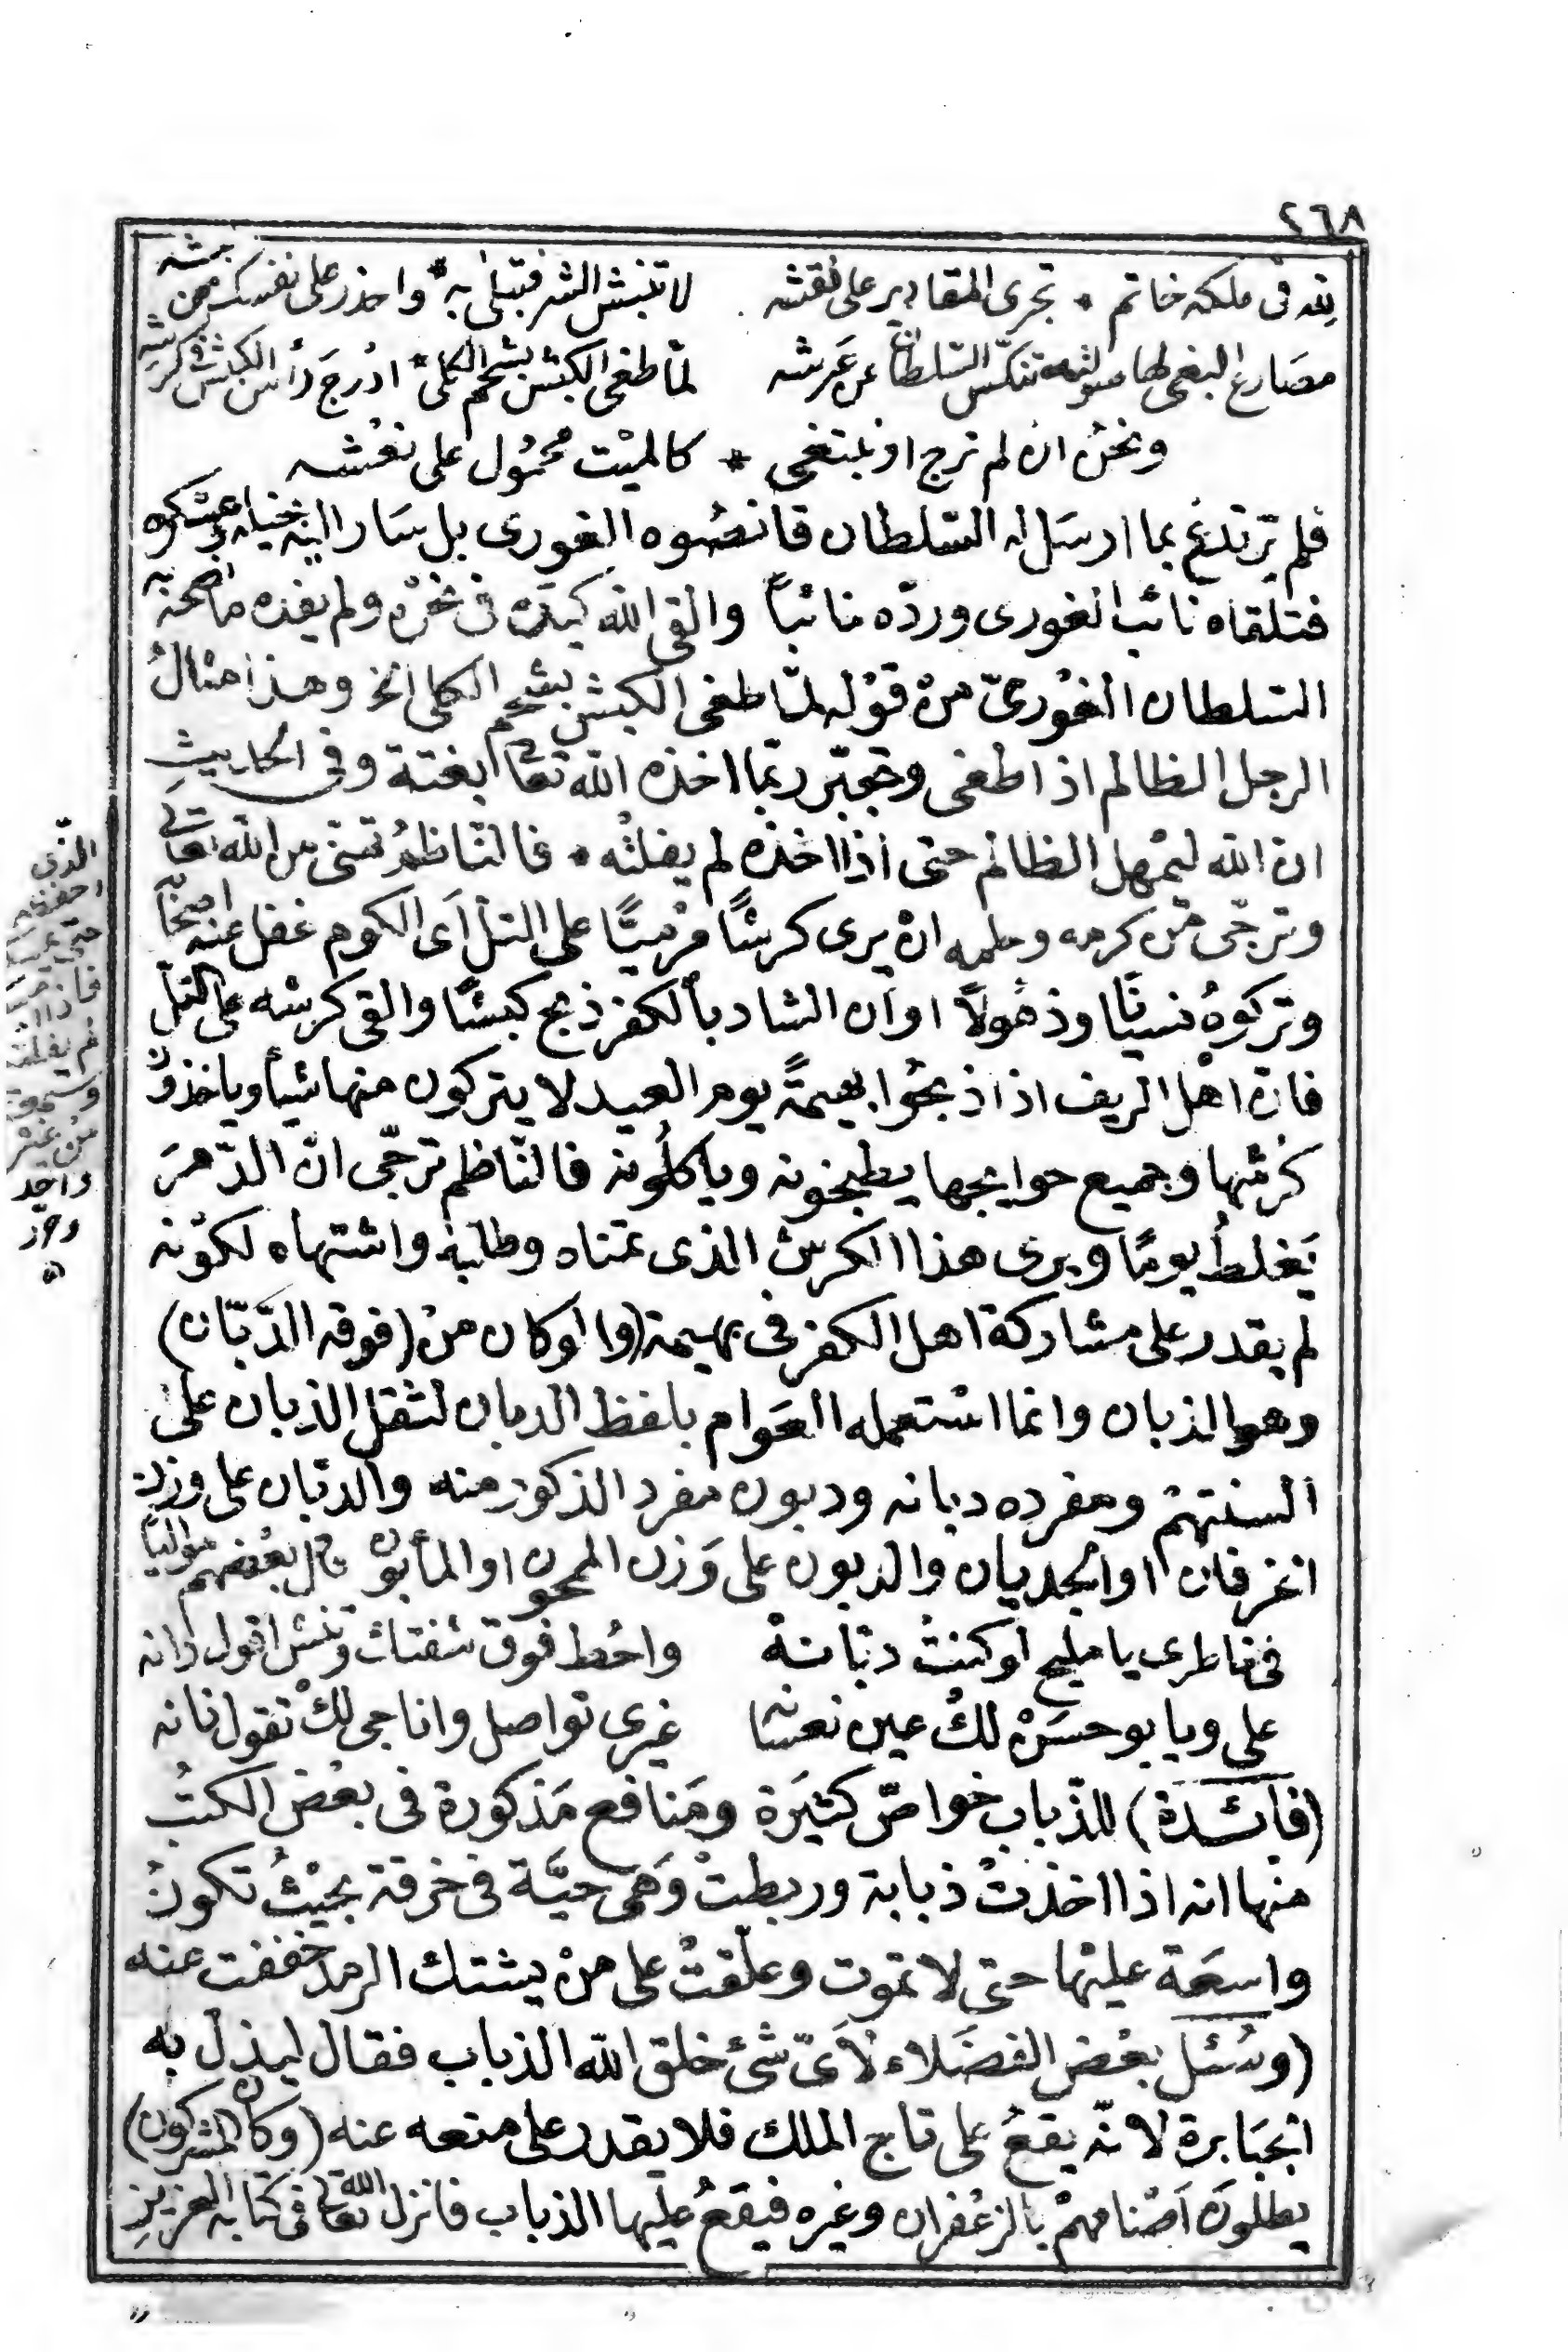 ٤٦٨
لله فى ملكه خاتم * تجرى المقادير على نقشه لا تنبش الشر فتبلى به * واحذر على نفسك من نبشه
مصارع البغى لها صولة تنكّس السّلطان عن عَرشه لمّا طغى الكبش بشحم الكلى * ادْرجَ رأس الكبش فى كرشه
ونحْنُ ان لم نرج او نبتغى * كالميْت محْمُول على نعْشه
فلم يَرْتدعْ بما ارسَل له السّلطان قانصُوه الغورى بل سَار اليْه بخيله وعسْكره
فتلقاه نائب الغورى وردّه خائباً والقى الله كيده فى نحْره ولم يفده ما نصحه به
السّلطان الغوْرىّ منْ قوْله لمّا طغى الكبش بشحم الكلى الخ وهذا مثالُ
الرجل الظالم اذا طغى وتجبّر ربّما اخذه الله تعالى بغتة وفى الحديثِ
ان الله ليمْهل الظالم حتى اذا اخذه لم يفلتْه * فالنّاظمُ تمنّى من الله تعالى
وترجّى منْ كرمه وحلمه انْ يرى كرشًا مرْميًّا على التلّ اَى الكوم غفل عنه اصحابه
وتركوهُ نسيانًا وذهُولاً اوان الشاد بالكفر ذبح كبشًا والقى كرشه على التلّ
فانّ اهْل الريف اذا ذبحُوا بهيمَةً يوم العيد لا يتركون منها شيأ وياخذونُ
كرْشها وجميع حوايجها يطبخونه وياكلُونه فالنّاظم ترجّى انّ الدّهرَ
يَغلطُ يومًا ويرى هذا الكرش الذى تمناه وطلبهُ واشتهاه لكوْنه
لم يقدر على مشاركة اهل الكفر فى بهيمة (ولو كان منْ (فوقه الدّبّان)
وهو الذبان وانما اسْتعمله العَوام بلفظ الدبان لثقل الذبان على
السنتهمْ ومفرده دبانه ودبون مفرد الذكور منه والدبّان على وزن
الخرفان او الجديان والدبون على وَزن المجون او المأبون قال بعْضهم مواليا
فى خاطرى يا مليح لو كنتْ دبّانهْ واحُط فوق شفتاك وتنش اقول دانه
على ويا بو حسَنْ لكْ عين نعسانه غيرى تواصل وانا جى لكْ تقول نانه
(فائدة) للذّباب خواصّ كثيَرة ومَنافع مَذكورة فى بعْض الكتبُ
منْها انه اذا اخذتْ ذبابة وربطتْ وَهى حيَّة فى خرقة بحيْثُ تكونُ
واسعَة عليْها حتى لا تموت وعلّقتْ على منْ يشتك الرمد خففت عنه
(وسُئل بعْض الفضَلاء لاَىّ شئ خلق الله الذباب فقال ليذل به
الجبَابرة لانّه يقعُ على تاج الملك فلا يقدر على منعه عنه (وكان المشركون)
يطلونَ اَصْنامهمْ بالزعْفران وغيره فيقعُ عليها الذباب فانزل الله تعالى فى كتابه العزيزِ
الذّى
حتى
لم يفلت
واحد